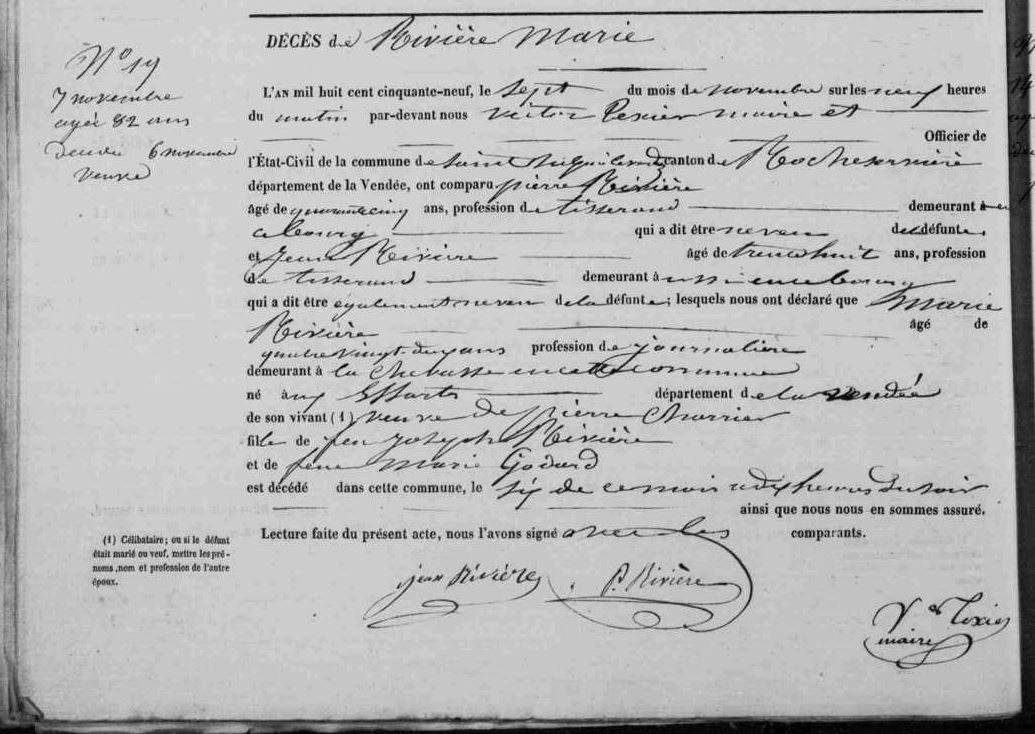 N° 19
7 novembre
agée 82 ans
6 novembre
veuve
DÉCÈS de Rivière Marie
L'AN mil huit cent cinquante-neuf, le sept du mois de novembre sur les neuf heures
du matin par-devant nous Victor Texier maire et
Officier de
l'État-Civil de la commune de Saint canton de Rocheservière
département de la Vendée, ont comparu pierre Rivière
âgé de quarante cinq ans, profession de tisserand demeurant à
bourg qui a dit être neveu de la défunte,
et Jean Rivière âgé de trente huit ans, profession
de tisserand demeurant à aussi en ce bourg
qui a dit être également neveu de la défunte; lesquels nous ont déclaré que Marie
Rivière âgé de
quatre vingt-deux ans profession de journalière
demeurant à la Chebasse en cette commune
né aux Essarts département de la Vendée
de son vivant (1) veuve de pierre Charrier
fille de feu Joseph Rivière
et de feue Marie Godard
est décédé dans cette commune, le six de ce mois a dix heures du soir
ainsi que nous nous en sommes assuré.
Lecture faite du présent acte, nous l'avons signé avec les comparants.
(1) Célibataire; ou si le défunt
était marié ou veuf, mettre les pré-
noms, nom et profession de l'autre
époux.
jean Rivière P. Rivière
Vor Texier
maire